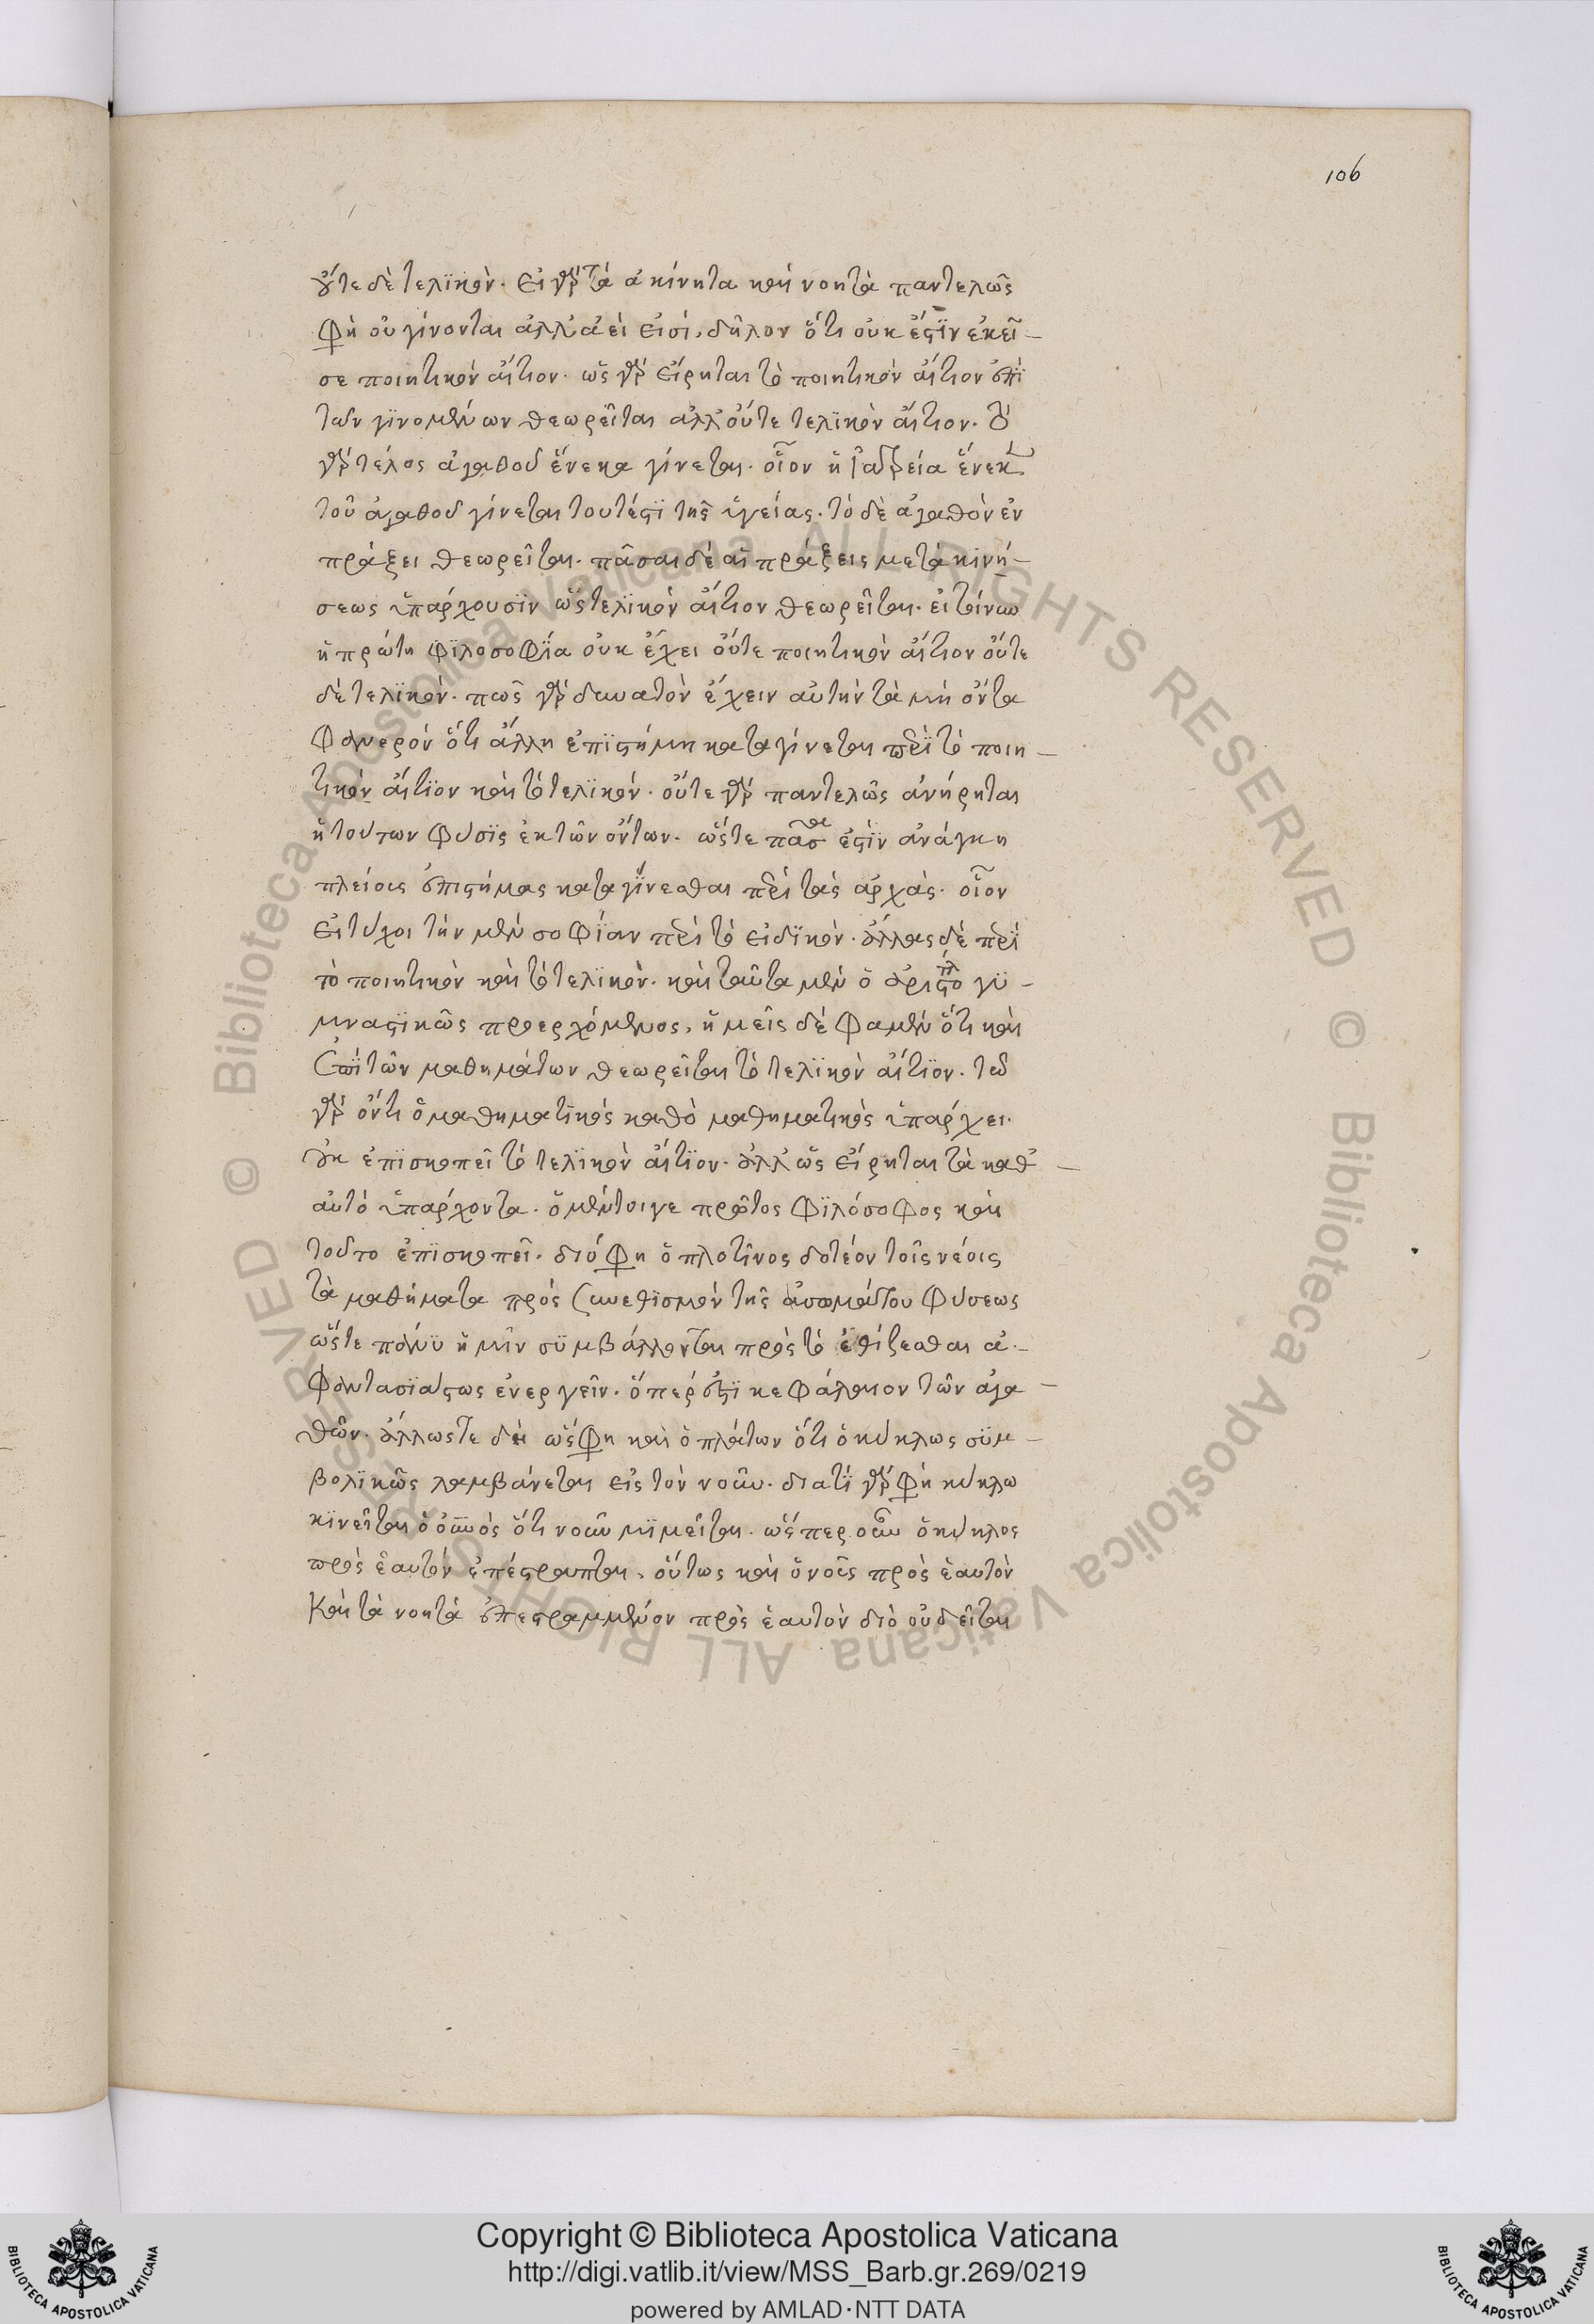 106
οὔτε δὲ τελϊκὸν. εἰ γὰρ τὰ ἀκίνητα καὶ νοητὰ παντελῶς
φη οὐ γίνονται ἀλλ' ἀεί εἰσί, δῆλον ὅτι οὐκ ἔστϊν ἐκεῖ-
σε ποιητικὸν αἴτιον. ὡς γὰρ εἴρηται τὸ ποιητικὸν αἴτιον ἐπὶ
τῶν γϊνομένων θεωρεῖται ἀλλ' οὔτε τελϊκὸν αἴτιον. τὸ
γὰρ τέλος ἀγαθοῦ ἕνεκα γίνεται. οἷον ἡ ἰατρεία ἕνεκα
τοῦ ἀγαθοῦ γίνεται τουτέστϊ τῆς ὑγείας. τὸ δὲ ἀγαθὸν ἐν
πράξει θεωρεῖται. πᾶσαι δὲ αἱ πράξεις μετὰ κινή-
σεως ὑπάρχουσϊν ὡς τελϊκὸν αἴτιον θεωρεῖται. εἰ τοίνυν
ἡ πρώτη φϊλοσοφία οὐκ ἔχει οὔτε ποιητικὸν αἴτιον οὔτε
δὲ τελϊκὸν. πῶς γὰρ δυνατὸν ἔχειν αὐτὴν τὰ μὴ ὄντα
φανερὸν ὅτι ἄλλη ἐπϊστήμη καταγίνεται περὶ τὸ ποιη-
τικὸν αἴτϊον καὶ τὸ τελϊκὸν. οὔτε γὰρ παντελῶς ἀνήρηται
ἡ τούτων φύσϊς ἐκ τῶν ὄντων. ὥστε πᾶσα ἐστϊν ἀνάγκη
πλείοις ἐπιστήμας καταγίνεσθαι περὶ τὰς ἀρχὰς. οἷον
εἰ τύχοι τὴν μὲν σοφίαν περὶ τὸ εἰδϊκὸν. ἄλλας δὲ περὶ
τὸ ποιητικὸν καὶ τὸ τελϊκὸν. καὶ ταῦτα μὲν ὁ ἀριστοτλ γϋ-
μναστϊκῶς προερχόμενος, ἡμεῖς δὲ φαμὲν ὅτι καὶ
ἐπὶ τῶν μαθημάτων θεωρεῖται τὸ τελϊκὸν αἴτϊον. τῶ
γὰρ ὄντι ὁ μαθηματικὸς καθὸ μαθηματικὸς ὑπάρχει.
οὐκ ἐπϊσκοπεῖ τὸ τελϊκὸν αἴτϊον. ἀλλ' ὡς εἴρηται τὰ καθ'-
αὑτὸ ὑπάρχοντα. ὁ μέντοιγε πρῶτος φϊλόσοφος καὶ
τοῦτο ἐπϊσκοπεῖ. διό φη ὁ πλοτῖνος δοτέον τοῖς νέοις
τὰ μαθήματα πρὸς συνεθϊσμὸν τῆς ἀσωμάτου φύσεως
ὥστε πάνϋ ἡμῖν σϋμβάλλονται πρὸς τὸ ἐθίζεσθαι ἀ-
φαντασϊάστως ἐνεργεῖν. ὅπερ ἐστὶ κεφάλαιον τῶν ἀγα-
θῶν. ἄλλωστε δὲ ὥς φη καὶ ὁ πλάτων ὅτι ὁ κύκλως σϋμ-
βολϊκῶς λαμβάνεται εἰς τὸν νοῦν. διατί γὰρ φη κύκλω
κϊνεῖται ὁ οὐνὸς ὅτι νοῦν μϊμεῖται. ὥσπερ οὖν ὁ κύκλος
πρὸς ἑαυτὸν ἐπέστραπται, οὕτως καὶ ὁ νοῦς πρὸς ἑαυτὸν
Καὶ τὰ νοητὰ ἐπεστραμμένον πρὸς ἑαυτὸν διὸ οὐ δεῖται
Copyright © Biblioteca Apostolica Vaticana
http://digi.vatlib.it/view/MSS_Barb.gr.269/0219
powered by AMLAD·NTT DATA
BIBLIOTECA APOSTOLICA VATICANA
BIBLIOTECA APOSTOLICA VATICANA
© Biblioteca Apostolica Vaticana ALL RIGHTS RESERVED © Biblioteca Apostolica Vaticana ALL RIGHTS RESERVED